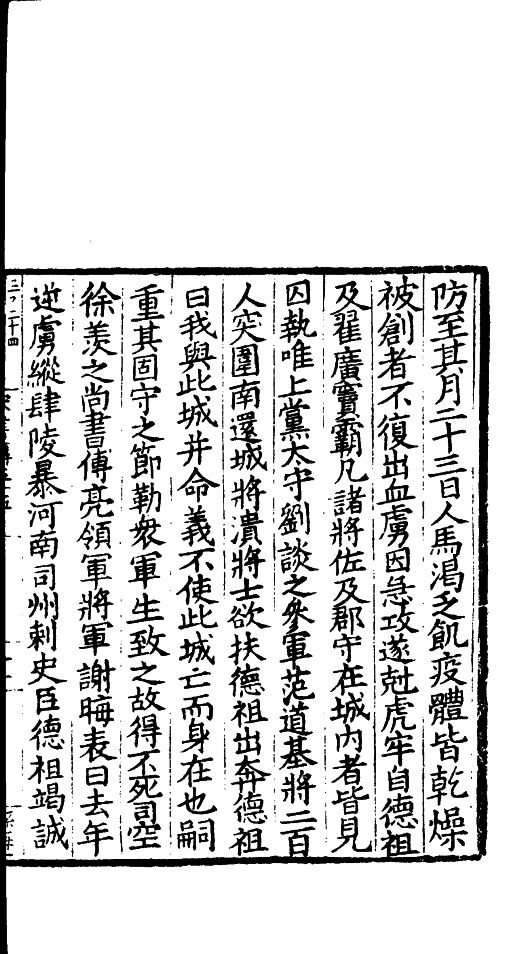 防至其月二十三日人馬渴乏飢疫體皆乾燥
被創者不復出血虜因急攻遂尅虎牢自德祖
及翟廣竇霸凡諸將佐及郡守在城內者皆見
囚執唯上黨太守劉談之參軍范道基將二百
人突圍南還城將潰將士欲扶德祖出奔德祖
曰我與此城并命義不使此城亡而身在也嗣
重其固守之節勒衆軍生致之故得不死司空
徐羨之尚書傅亮領軍將軍謝晦表曰去年
逆虜縱肆陵暴河南司州刺史臣德祖竭誠